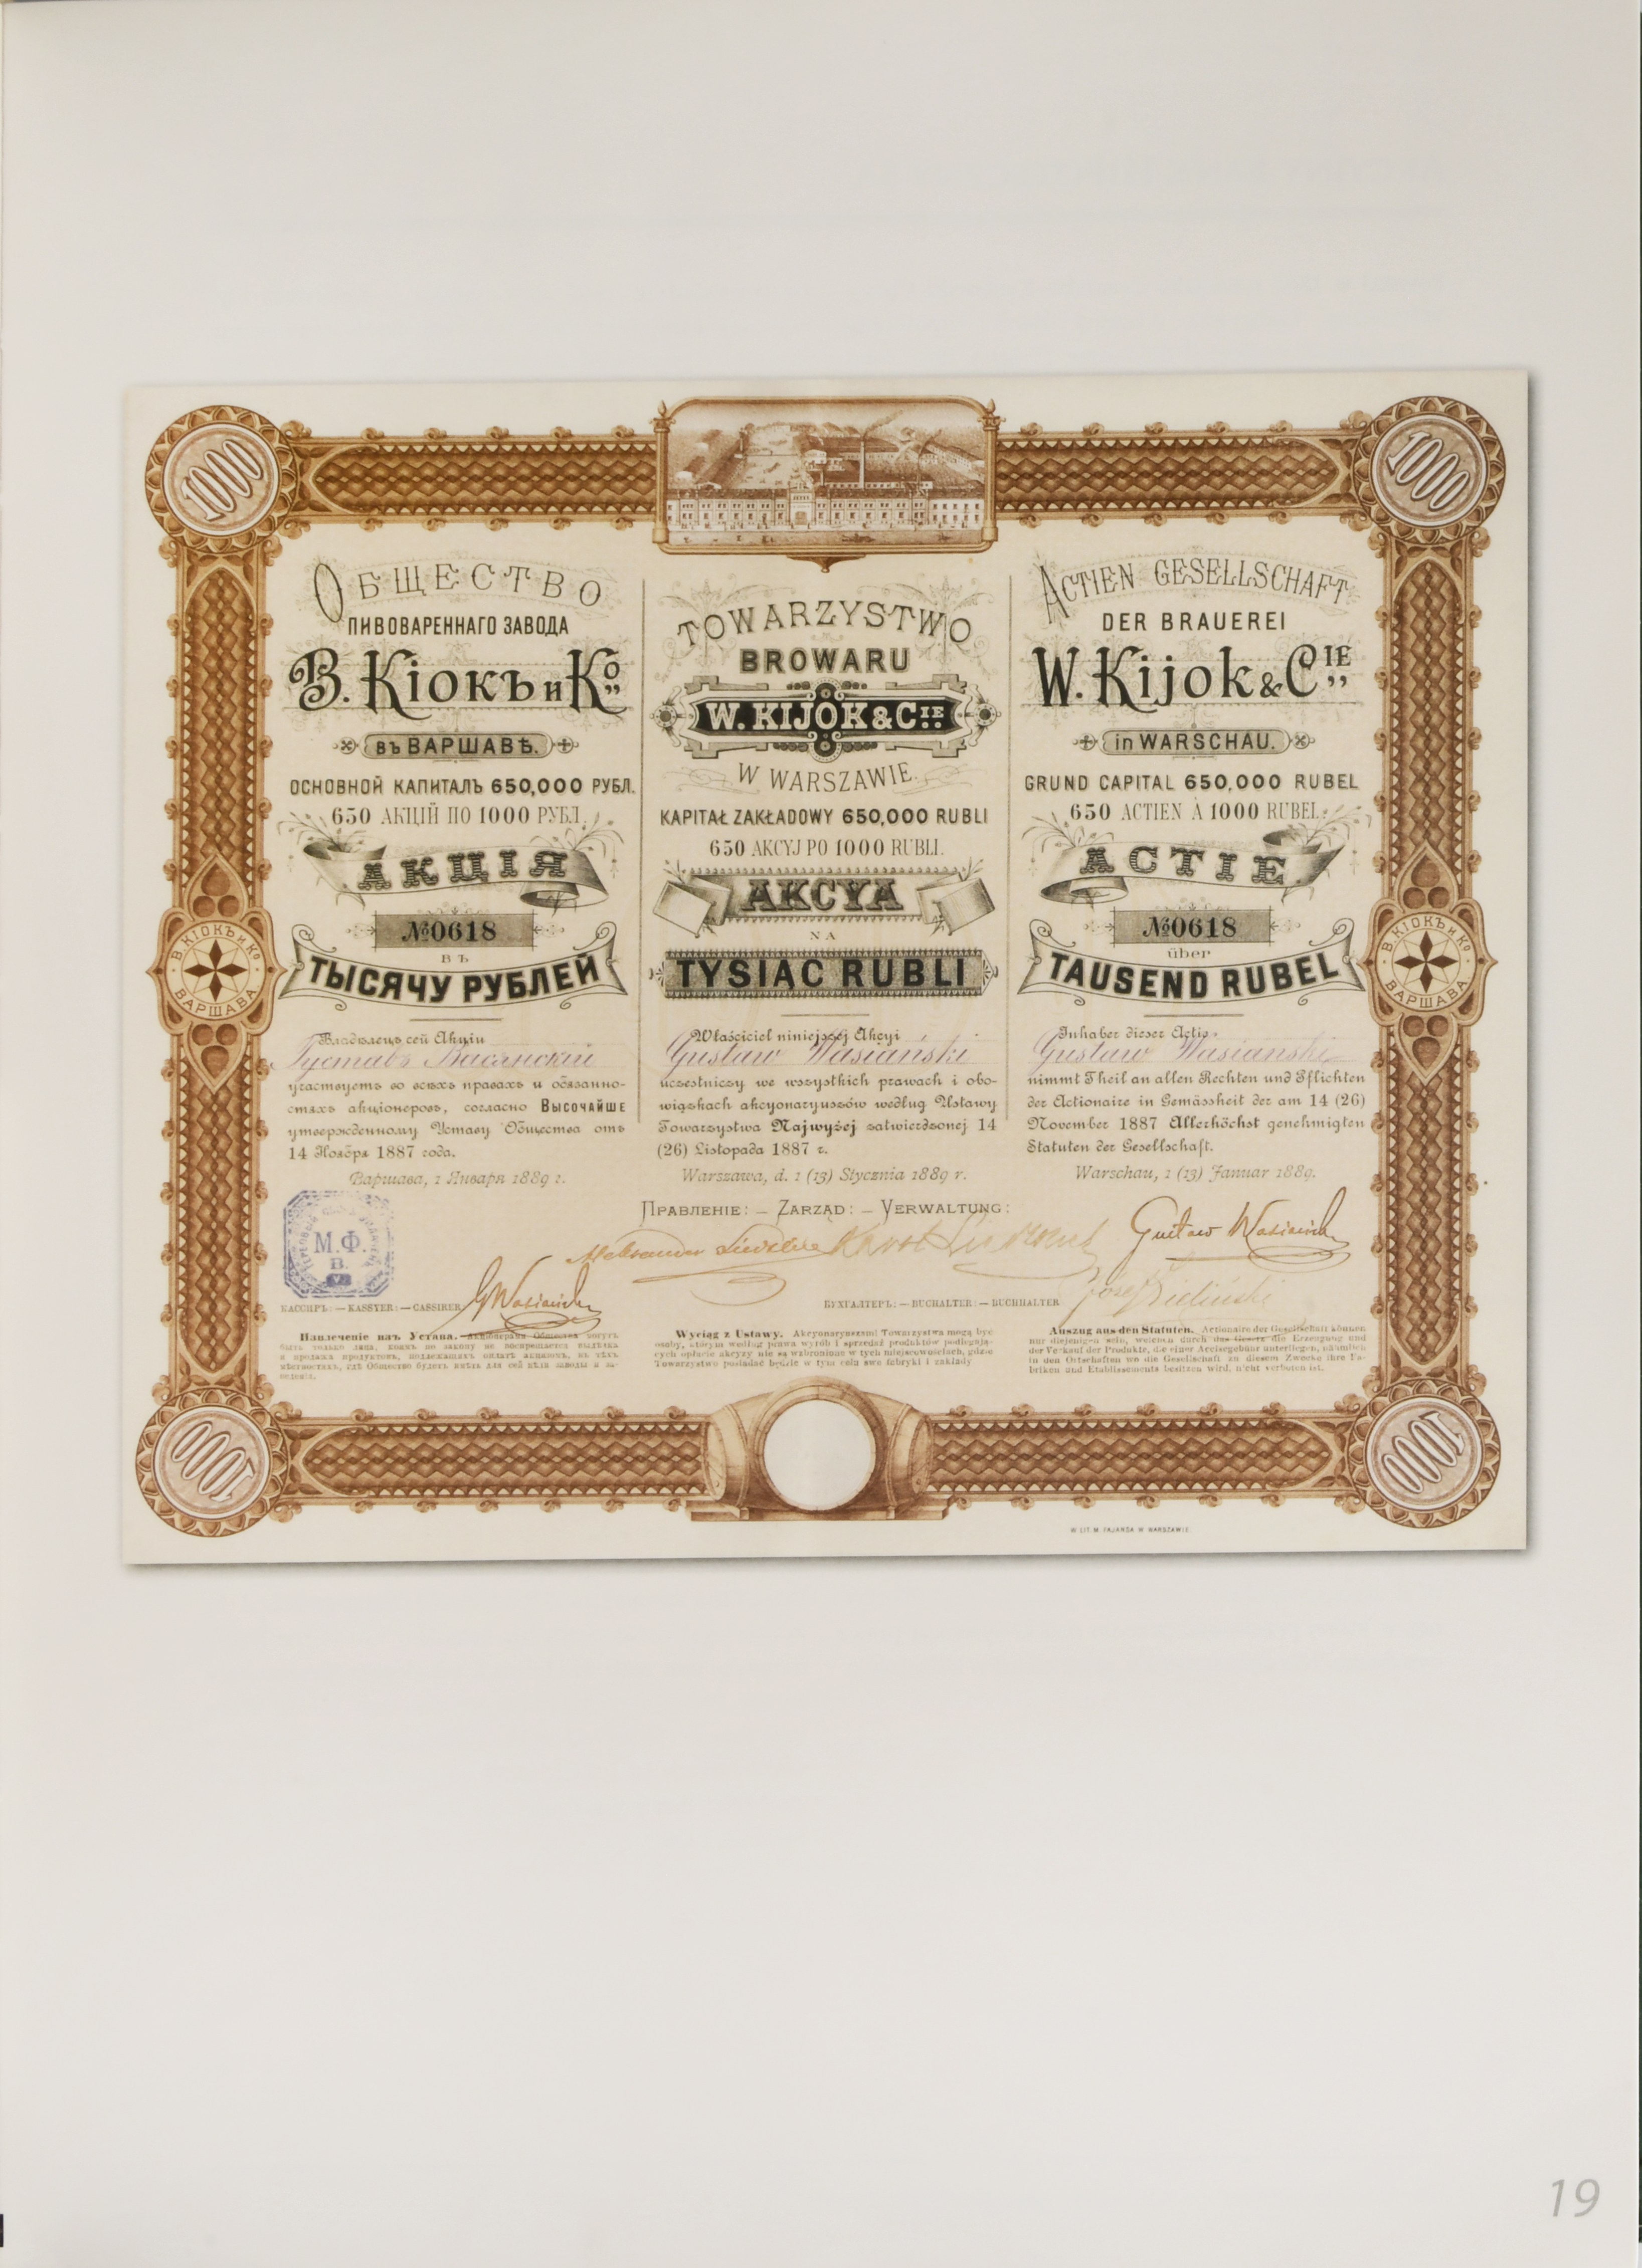 1000
1000
ОБЩЕСТВО
ПИВОВАРЕННАГО ЗАВОДА
В. Кіокъ и Ко
въ ВАРШАВѢ.
ОСНОВНОЙ КАПИТАЛЪ 650,000 РУБЛ.
650 АКЦІЙ ПО 1000 РУБЛ.
АКЦІЯ
№0618
ВЪ
ТЫСЯЧУ РУБЛЕЙ
Владѣлецъ сей Акціи
Густавъ Васянскій
участвуетъ во всѣхъ правахъ и обязанно-
стяхъ акціонеровъ, согласно ВЫСОЧАЙШЕ
утвержденному Уставу Общества отъ
14 Ноября 1887 года.
Варшава, 1 Января 1889 г.
TOWARZYSTWO
BROWARU
W. KIJOK & CIE
W WARSZAWIE.
KAPITAŁ ZAKŁADOWY 650,000 RUBLI
650 AKCYJ PO 1000 RUBLI.
AKCYA
NA
TYSIĄC RUBLI
Właściciel niniejszej Akcyi
Gustaw Wasiański
uczestniczy we wszystkich prawach i obo-
wiązkach akcyonaryuszów według Ustawy
Towarzystwa Najwyżej zatwierdzonej 14
(26) Listopada 1887 r.
Warszawa, d. 1 (13) Stycznia 1889 r.
ACTIEN GESELLSCHAFT
DER BRAUEREI
W. Kijok & CIE
in WARSCHAU.
GRUND CAPITAL 650,000 RUBEL
650 ACTIEN À 1000 RUBEL.
ACTIE
№0618
über
TAUSEND RUBEL
Inhaber dieser Actie
Gustaw Wasianski
nimmt Theil an allen Rechten und Pflichten
der Actionaire in Gemässheit der am 14 (26)
November 1887 Allerhöchst genehmigten
Statuten der Gesellschaft.
Warschau, 1 (13) Januar 1889.
В. КІОКЪ и Ко
ВАРШАВА
В. КІОКЪ и Ко
ВАРШАВА
ПРАВЛЕНІЕ: — ZARZĄD: — VERWALTUNG:
М.Ф.
В.
Gustaw Wasiański
КАССИРЪ: — KASSYER: — CASSIRER
GWasiański
БУХГАЛТЕРЪ: — BUCHALTER: — BUCHHALTER
Józef Zieliński
Извлеченіе изъ Устава. Акціонерами Общества могутъ
быть только лица, коимъ по закону не воспрещается выдѣлка
и продажа продуктовъ, подлежащихъ оплатѣ акцизомъ, въ тѣхъ
мѣстностяхъ, гдѣ Общество будетъ имѣть для сей цѣли заводы и за-
веденія.
Wyciąg z Ustawy. Akcyonaryuszami Towarzystwa mogą być
osoby, którym według prawa wyrób i sprzedaż produktów podlegają-
cych opłacie akcyzy nie są wzbronione w tych miejscowościach, gdzie
Towarzystwo posiadać będzie w tym celu swe fabryki i zakłady
Auszug aus den Statuten. Actionaire der Gesellschaft können
nur diejenigen sein, welchen durch das Gesetz die Erzeugung und
der Verkauf der Produkte, die einer Accisegebühr unterliegen, nämlich
in den Ortschaften wo die Gesellschaft zu diesem Zwecke ihre Fa-
briken und Etablissements besitzen wird, nicht verboten ist.
1000
1000
W LIT. M. FAJANSA W WARSZAWIE
19